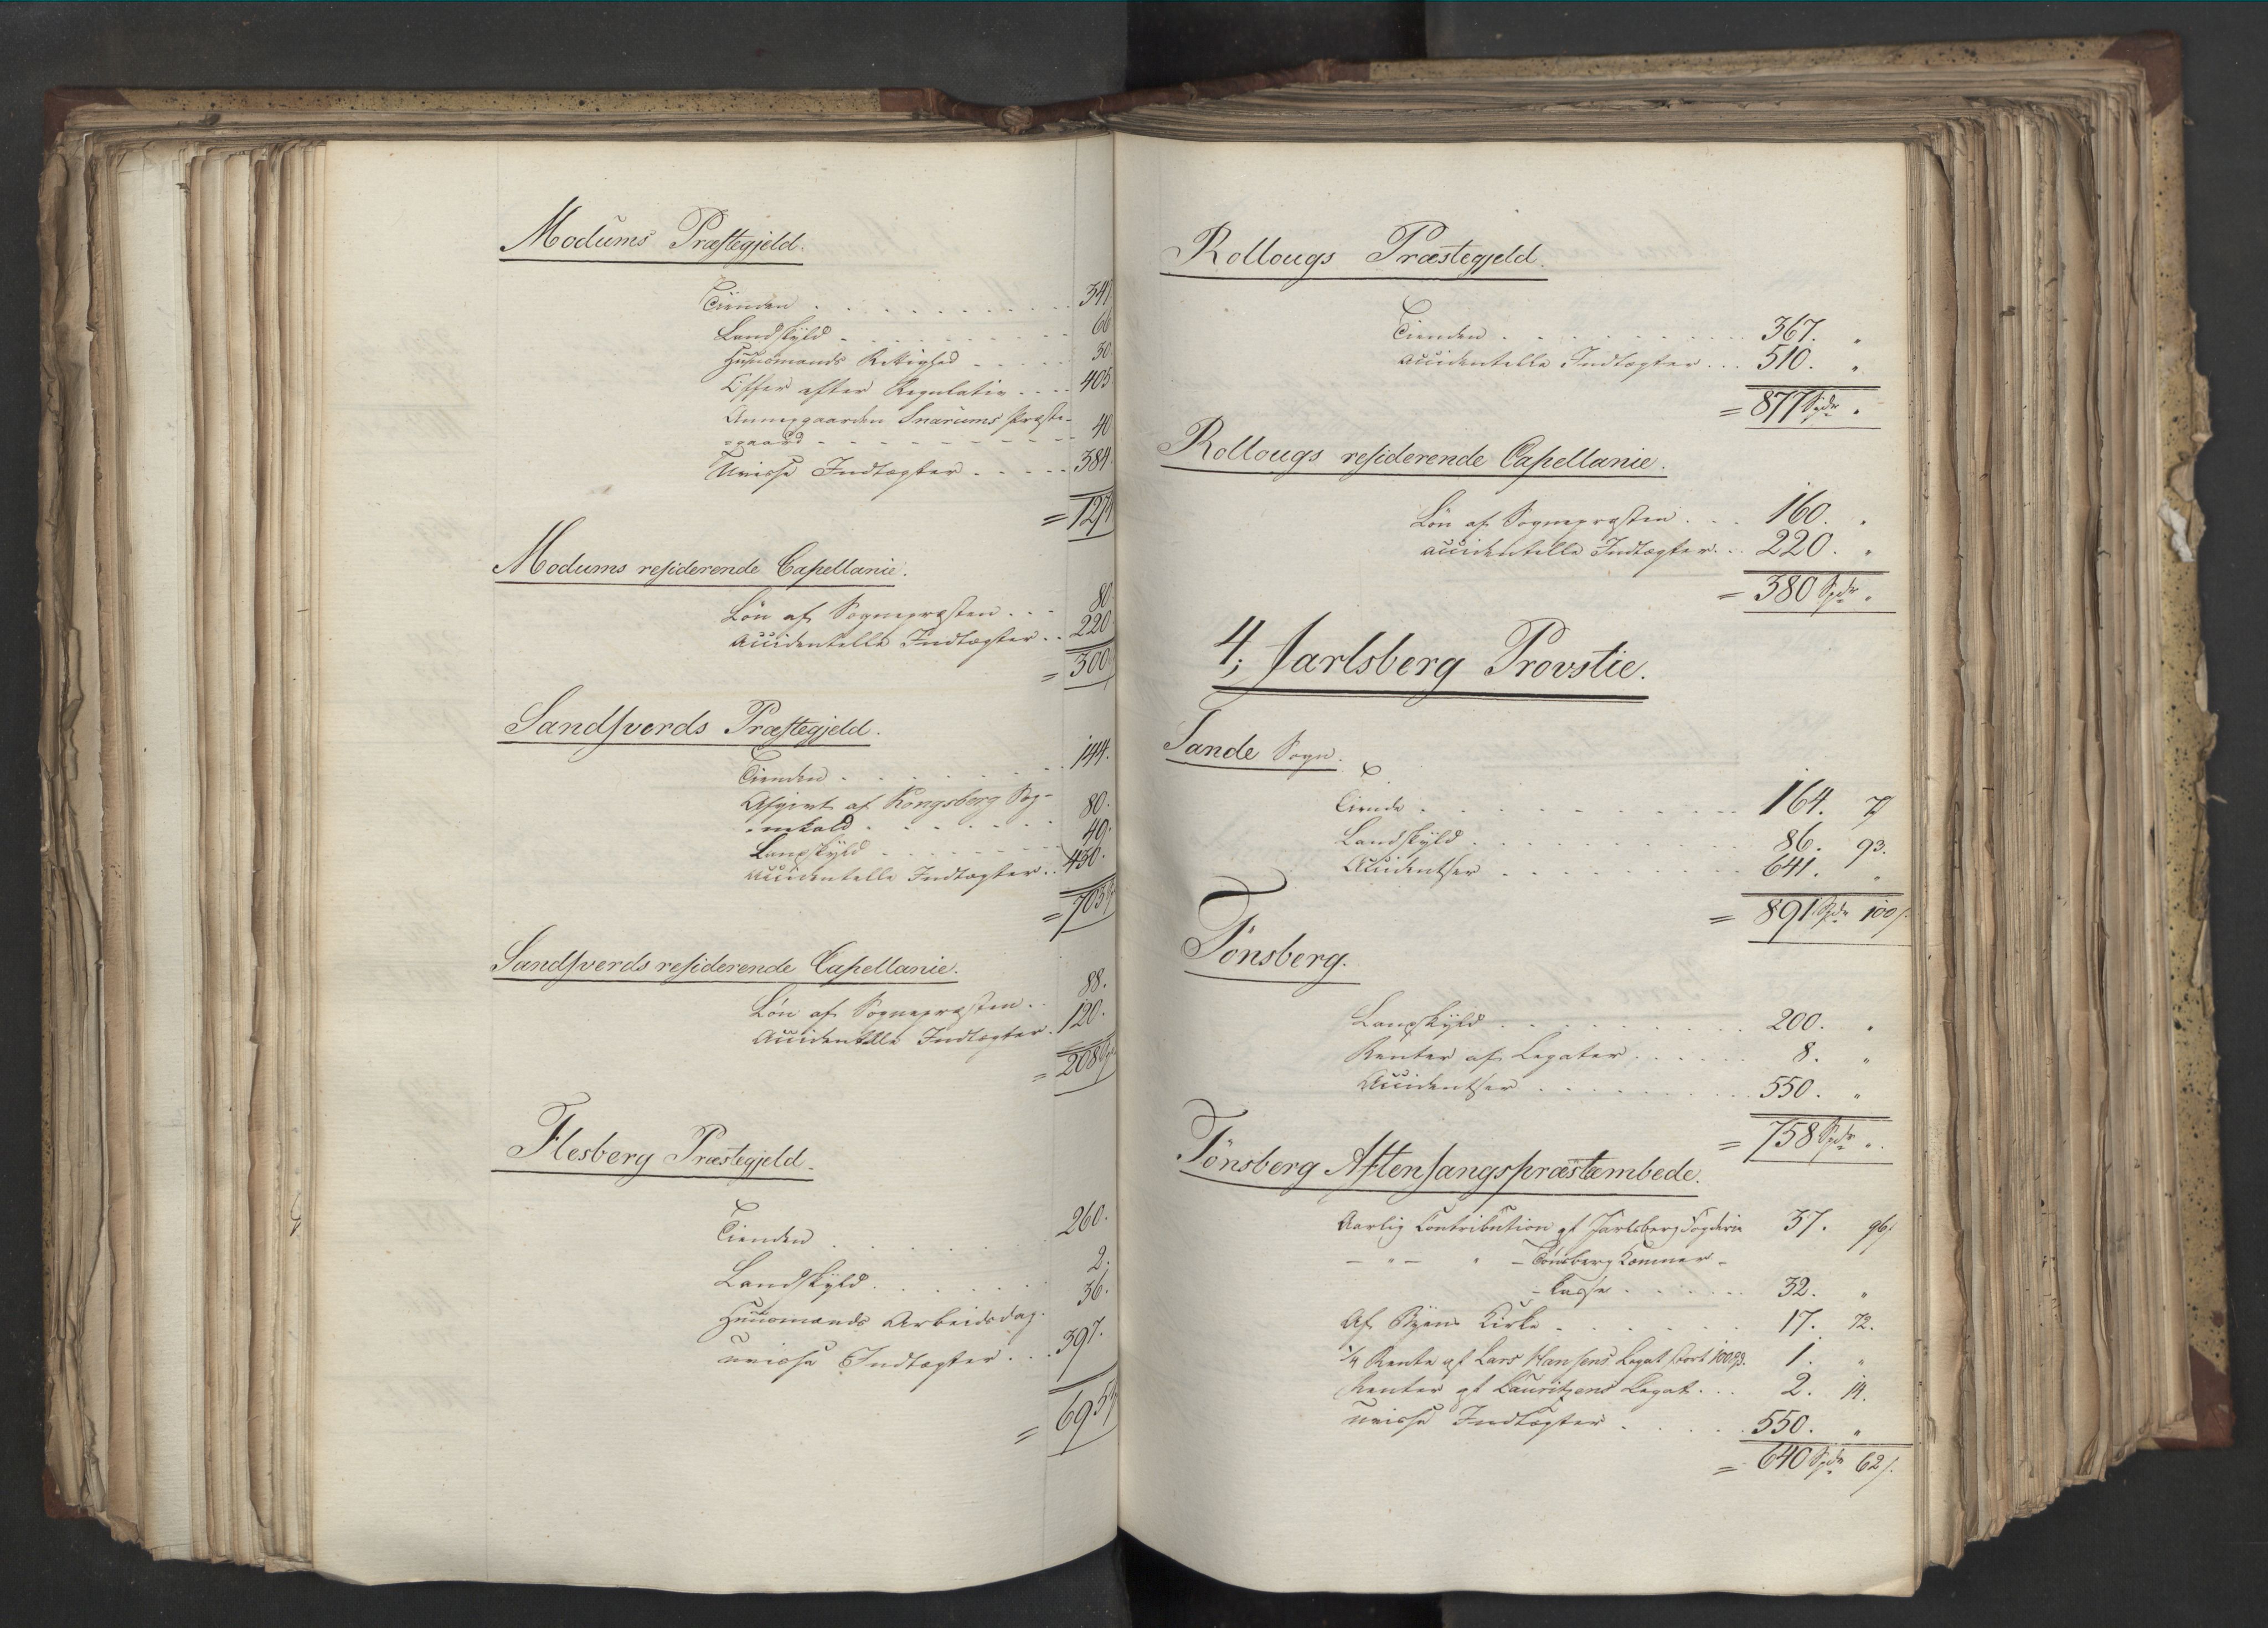 Modums Præstegjeld.
Tienden . . . . . . . . . 341
Landskyld . . . . . . . . 66
Huusmands Rettighed . . . . 30
Offer efter Regulativ . . . 405
Annexgaarden Snarums Præste-
=gaard . . . . . . . . . 40
Uvisse Indtægter . . . . . 384.
= 127
Modums residerende Capellanie.
Lön af Sognepræsten . . . 80
Accidentelle Indtægter . . 220
= 300
Sandsverds Præstegjeld.
Tienden . . . . . . . . 144.
Afgivt af Kongsberg Sog-
=nekald . . . . . . . 80.
Landskyld . . . . . . . 40.
Accidentelle Indtægter . . 450.
= 705
Sandsverds residerende Capellanie.
Lön af Sognepræsten . . 88.
Accidentelle Indtægter . 120.
= 208
Flesberg Præstegjeld.
Tienden . . . . . . 260.
Landskyld . . . . . . 2.
Huusmands Arbeidsdag. 36.
uvisse Indtægter . . . 397.
= 695
Rollougs Præstegjeld.
Tienden . . . . . . . . . 367. "
Accidentelle Indtægter . . . 510. "
= 877 Spdr "
Rollougs residerende Capellanie.
Lön af Sognepræsten . . . 160. "
accidentelle Indtægter . . 220. "
= 380 Spdr "
4; Jarlsberg Provstie.
Sande Sogn.
Tiende . . . . . . . . . . 164. 7
Landskyld . . . . . . . . . 86. 93.
Accidentser . . . . . . . . 641. "
= 891 Spdr 100/.
Tönsberg.
Landskyld . . . . . . . . 200. "
Renter af Legater . . . . . 8. "
Accidentser . . . . . . . . 550. "
= 758 Spdr "
Tönsberg Aftensangspræstembede.
Aarlig Contribution af Jarlsberg Fogderie 37. 96/
— " — " — Tönsberg Kæmner-
-Casse . . . . . . 32. "
Af Byens Kirke . . . . . . 17. 72.
1/4 Rente af Lars Hansens Legat stort 100 Spd. 1. "
Renter af Lauritzens Legat . . . 2. 14.
uvisse Indtægter . . . . . 550. "
= 640 Spdr 62/.